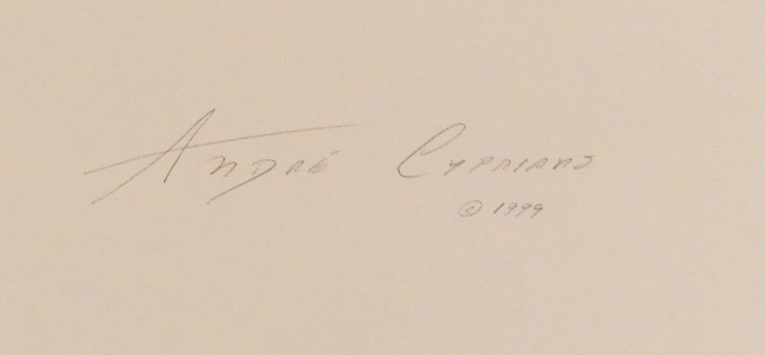 André Cypriano
© 1999